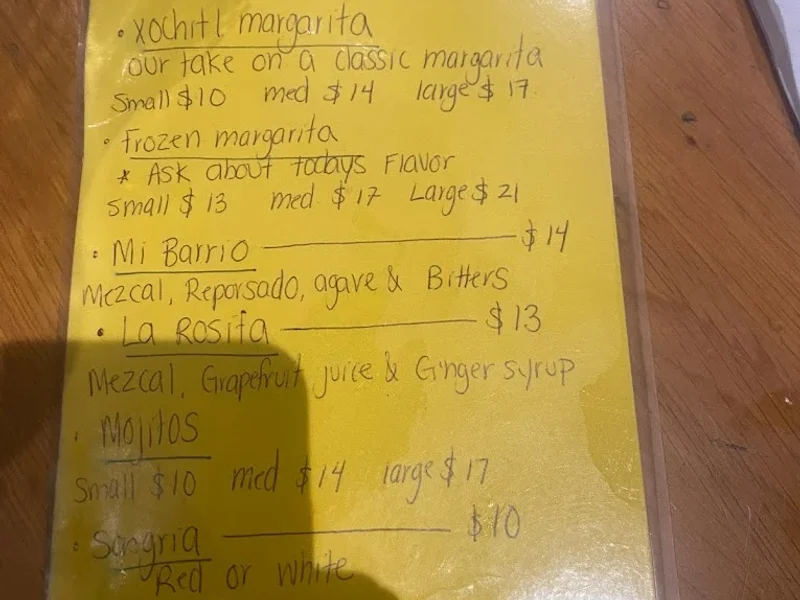 • Xochitl margarita
our take on a classic margarita
Small $10 med $14 large $17
• Frozen margarita
* Ask about todays Flavor
small $13 med $17 Large $21
• Mi Barrio $14
Mezcal, Reporsado, agave & Bitters
• La Rosita $13
Mezcal, Grapefruit juice & Ginger syrup
• Mojitos
Small $10 med $14 large $17
• Sangria $10
Red or white